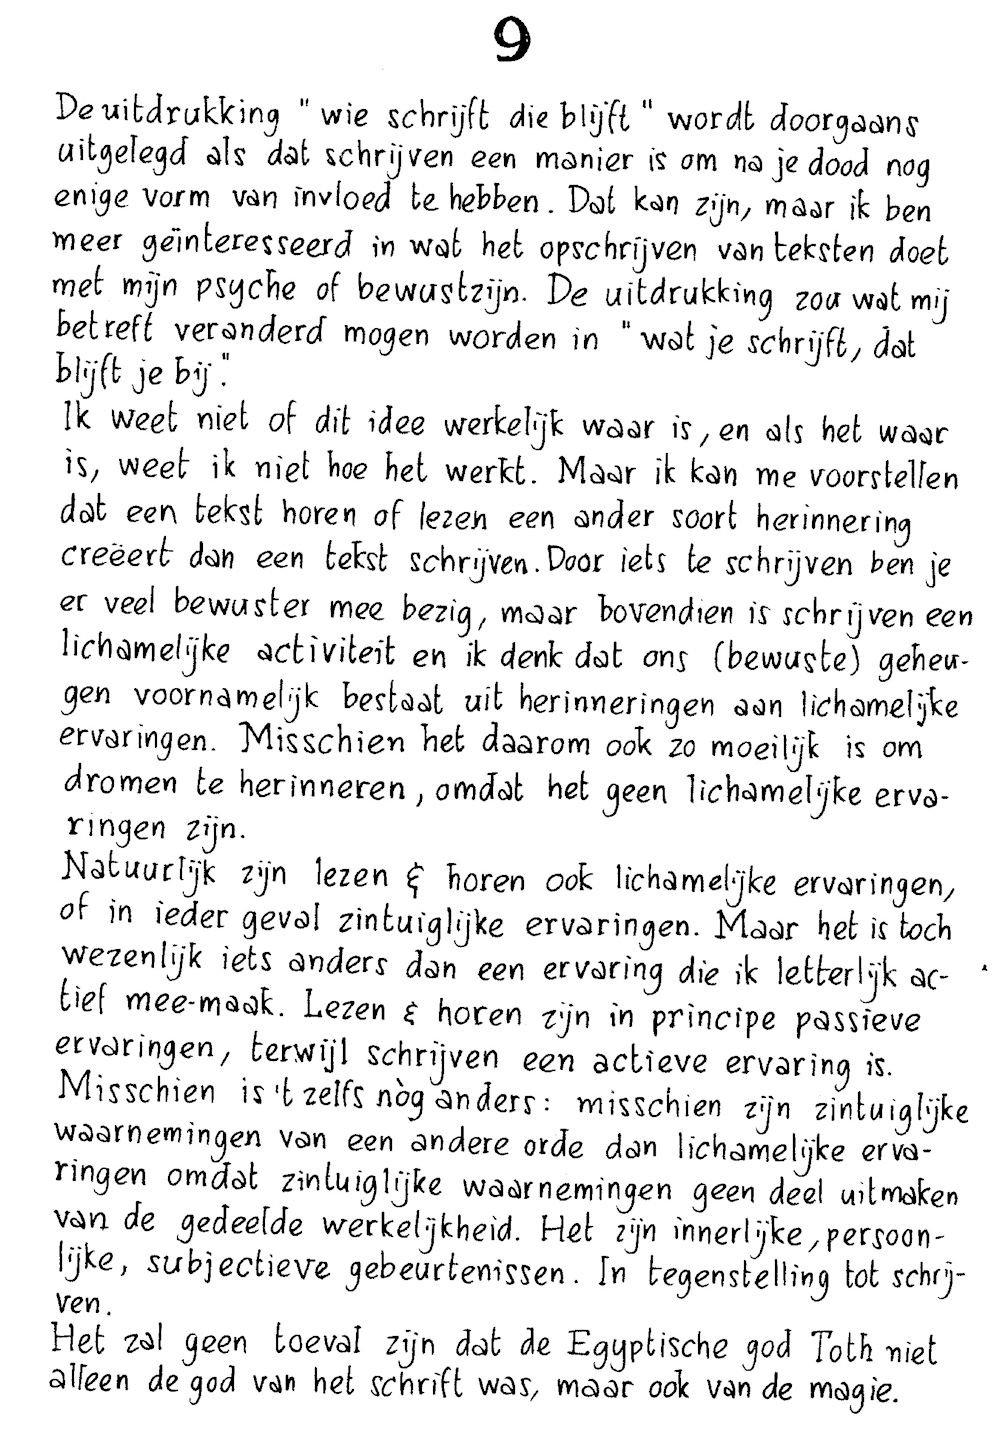 9
De uitdrukking "wie schrijft die blijft" wordt doorgaans
uitgelegd als dat schrijven een manier is om na je dood nog
enige vorm van invloed te hebben. Dat kan zijn, maar ik ben
meer geïnteresseerd in wat het opschrijven van teksten doet
met mijn psyche of bewustzijn. De uitdrukking zou wat mij
betreft veranderd mogen worden in "wat je schrijft, dat
blijft je bij".
Ik weet niet of dit idee werkelijk waar is, en als het waar
is, weet ik niet hoe het werkt. Maar ik kan me voorstellen
dat een tekst horen of lezen een ander soort herinnering
creëert dan een tekst schrijven. Door iets te schrijven ben je
er veel bewuster mee bezig, maar bovendien is schrijven een
lichamelijke activiteit en ik denk dat ons (bewuste) geheu-
gen voornamelijk bestaat uit herinneringen aan lichamelijke
ervaringen. Misschien het daarom ook zo moeilijk is om
dromen te herinneren, omdat het geen lichamelijke erva-
ringen zijn.
Natuurlijk zijn lezen & horen ook lichamelijke ervaringen,
of in ieder geval zintuiglijke ervaringen. Maar het is toch
wezenlijk iets anders dan een ervaring die ik letterlijk ac-
tief mee-maak. Lezen & horen zijn in principe passieve
ervaringen, terwijl schrijven een actieve ervaring is.
Misschien is 't zelfs nòg anders: misschien zijn zintuiglijke
waarnemingen van een andere orde dan lichamelijke erva-
ringen omdat zintuiglijke waarnemingen geen deel uitmaken
van de gedeelde werkelijkheid. Het zijn innerlijke, persoon-
lijke, subjectieve gebeurtenissen. In tegenstelling tot schrij-
ven.
Het zal geen toeval zijn dat de Egyptische god Toth niet
alleen de god van het schrift was, maar ook van de magie.